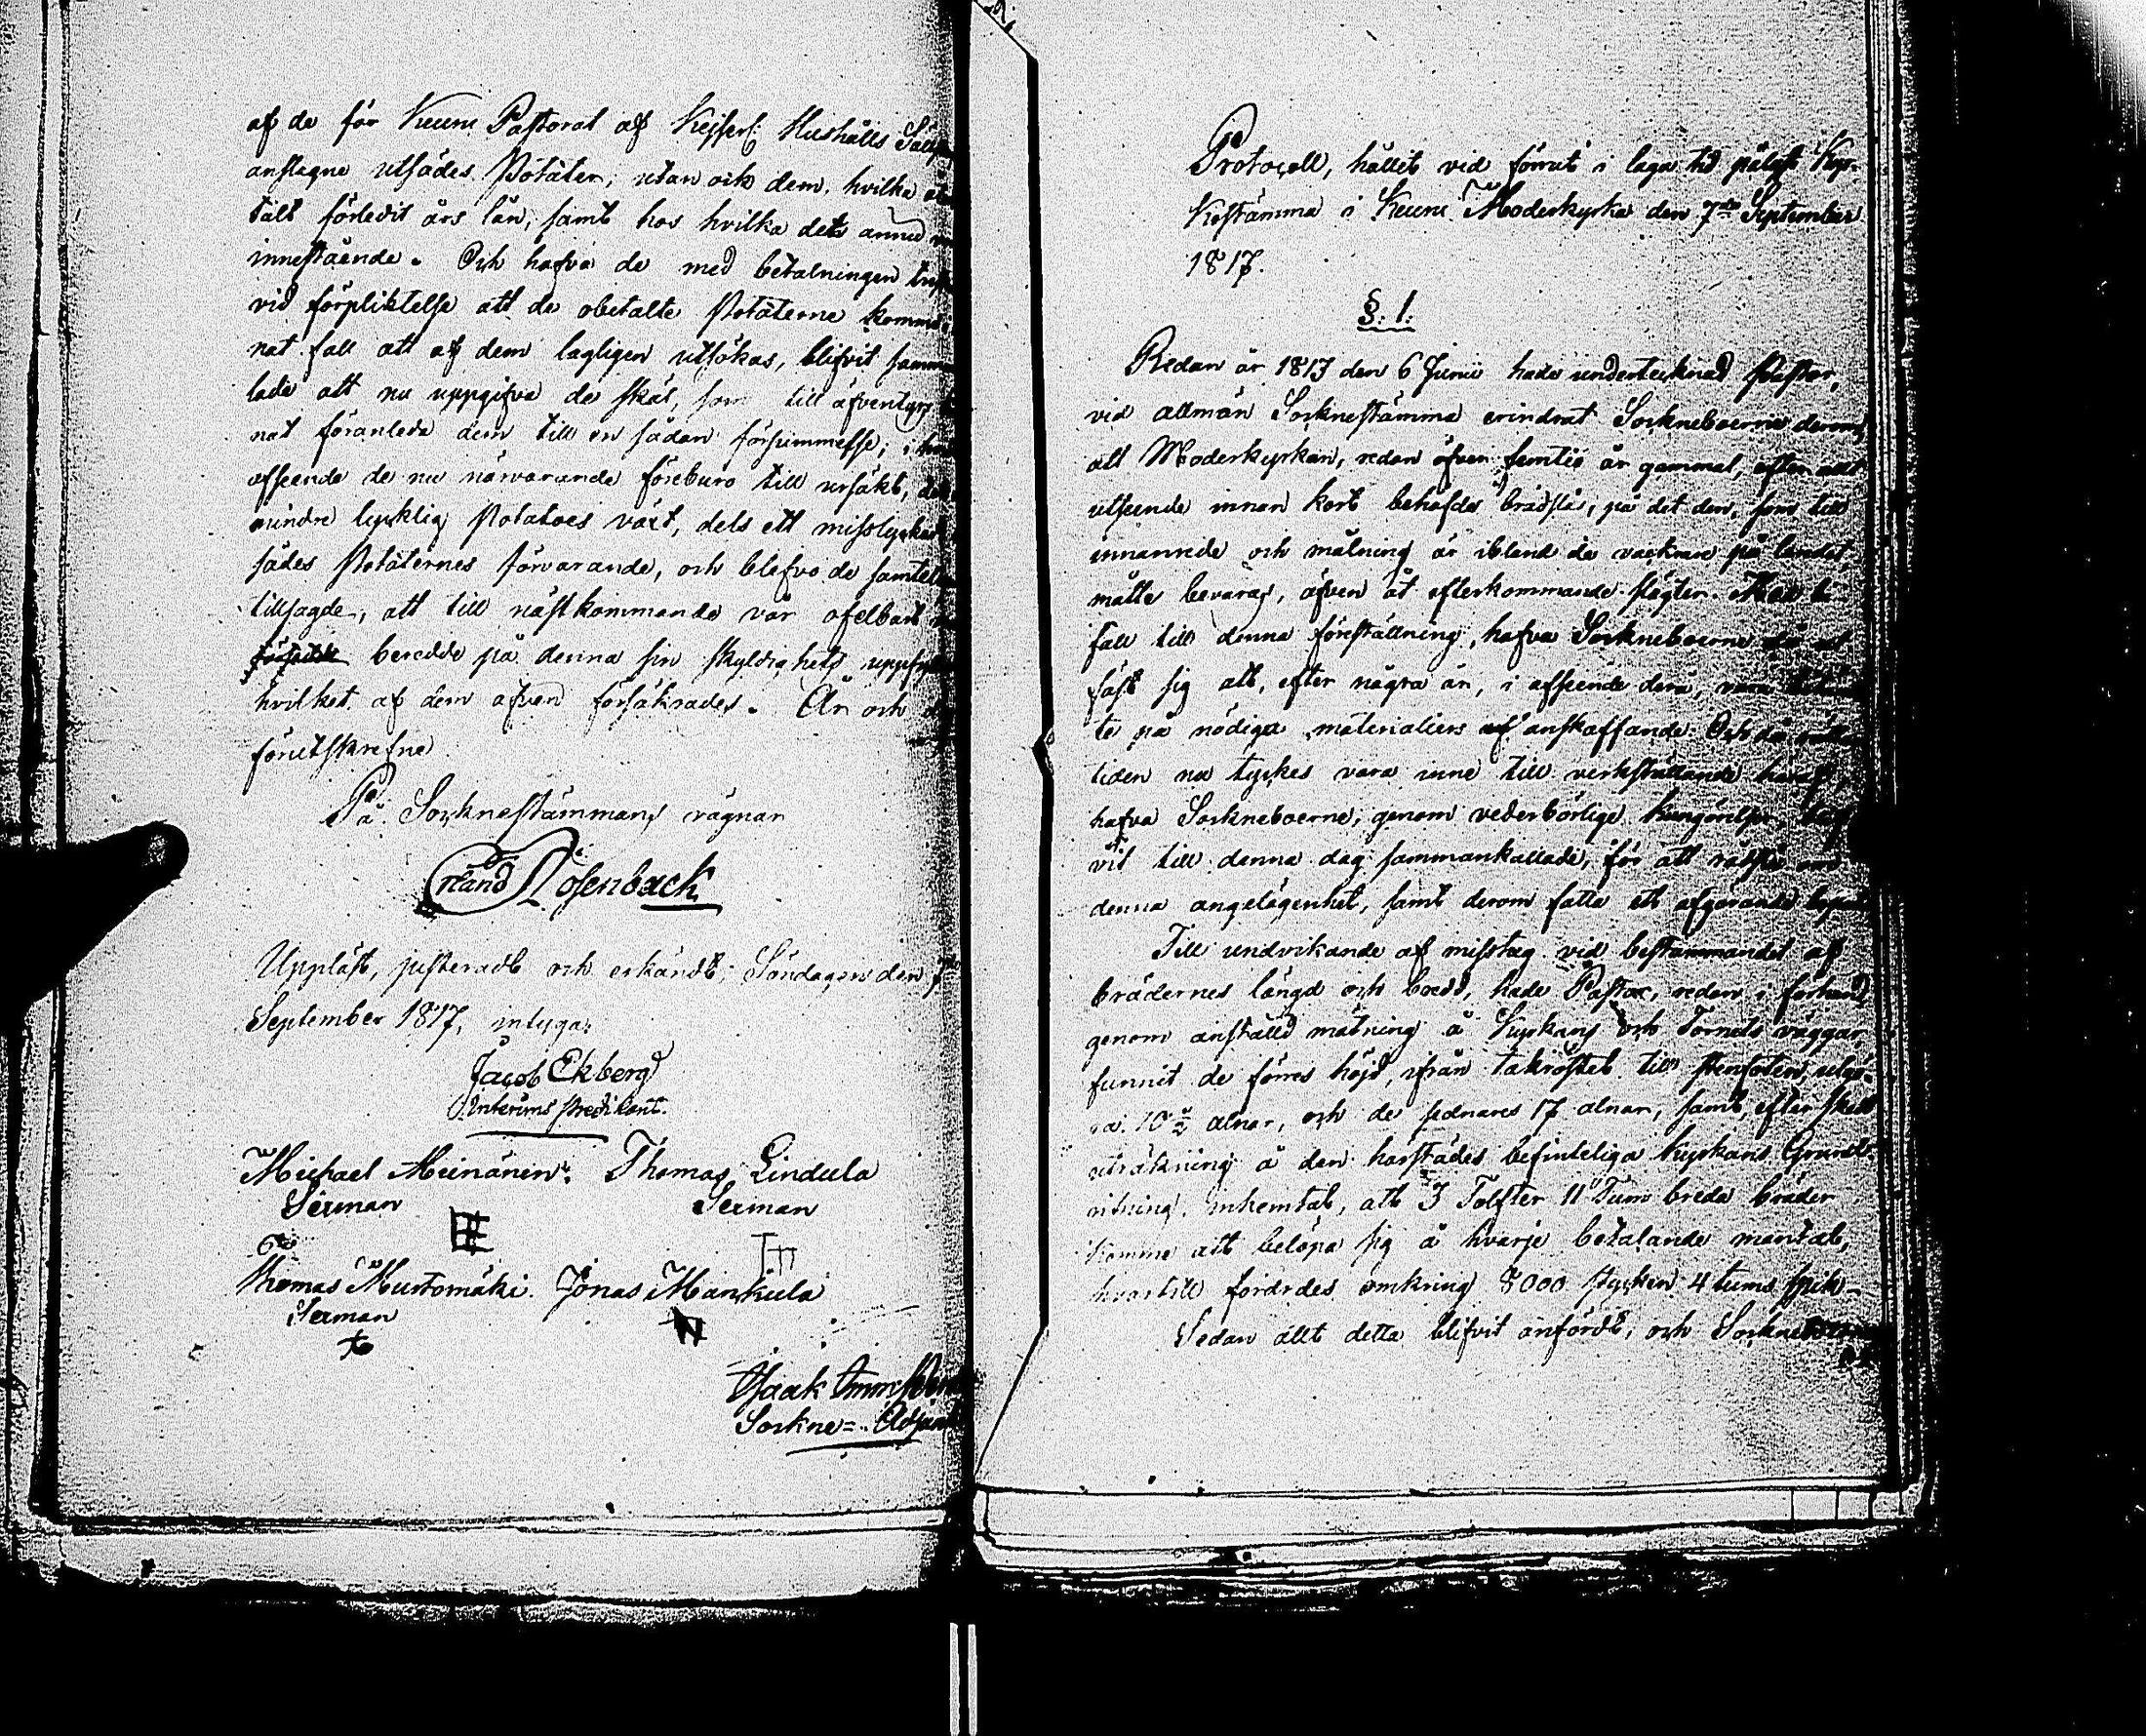 af de för Keuru Pastorat af Kejserl: Hushålls Sällsk
anslagne utsädes Potäter, utan ock dem, hvilka
talt förledit års lån, samt hos hvilka dets ännu
innestående. Och hafva de med betalningen
vid förpliktelse att de obetalte Potäterne
nat fall att af dem lagligen utsökas, blifvit
lade att nu uppgifva de skäl, som till äfventyrs
nat föranleda dem till en sådan försummelse; i
afseende de nu närvarande föreburo till ursäkt,
mindre lycklig Potatoes växt, dels ett misslyckat
sädes Potäternes förvarande, och blefvo de samtelige
tillsagde, att till nästkommande vår ofelbart
beredde på denna sin skyldighets uppfyl
hvilket af dem äfven försäkrades. År och
förutskrefne
På Sockneståmmans vägnar
Erland Rosenback
Uppläst, justeradt och erkändt, Söndagen den 7de
September 1817, intyga,
Jacob Ekberg
Interims predikant.
Michael Meinänen. Thomas Lindula
Sexman Sexman
Thomas Mustomäki. Jonas Mankula
Sexman
Isaak
Sockne= Adjunkt
Protocoll, hållit vid förrut i laga tid pålyst Kyr-
kostämma i Keuru Moderkyrka den 7de September
1817.
§. 1.
Redan år 1813 den 6 Junii hade undertecknad Pastor,
vid allmän Socknestämma erindrat Sockneboerne derom,
att Moderkyrkan, redan öfver femtio år gammal, efter allt
utseende innan kort behöfde brädslås, på det den, som till
innanrede och målning är ibland de vackrare på landet,
måtte bevaras, äfven åt efterkommande slägter. Med bi-
fall till denna föreställning, hafva Sockneboerne
fäst sig att, efter några år, i afseende derå, vara
te på nödiga materialiers anskaffande. Och då
tiden nu tyckes vara inne till verkställande häraf,
hafva Sockneboerne, genom vederbörlige kungörelser,
vit till denna dag sammankallade, för att rådslå om
denna angelägenhet, samt derom fatta ett afgörande
Till undvikande af misstag vid bestämmandet af
brädernes längd och bredd, hade Pastor, redan i förhand,
genom anställd mätning å Kyrkans och Tornets väggar
funnit de förres höjd, ifrån takröstet till stenfoten,
ra 10 ½ alnar, och de sednares 17 alnar, samt, efter skedd
uträkning å den härstädes befinteliga Kyrkans Grund-
ritning, inhemtat, att 3 Tolfter 11 Tum breda bräder
komme att belöpa sig å hvarje betalande mantal,
hvartill fordrdes omkring 8000 stycken 4 tums spik.
Sedan allt detta blifvit anfördt, och Sockneboerne